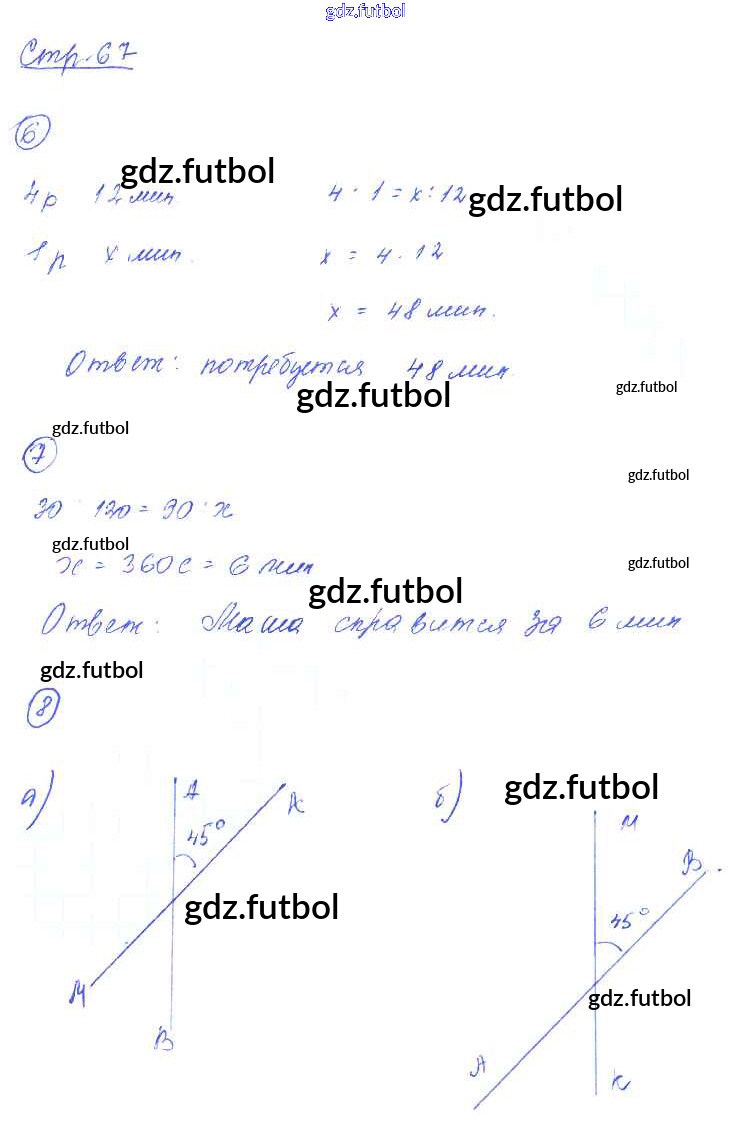 gdz.futbol
Стр. 67
6
gdz.futbol
4р 12 мин 4 : 1 = x : 12 gdz.futbol
1р x мин. x = 4 · 12
x = 48 мин.
Ответ: потребуется 48 мин.
gdz.futbol gdz.futbol
gdz.futbol
7 gdz.futbol
30 : 120 = 90 : x
gdz.futbol gdz.futbol
x = 360 с = 6 мин
gdz.futbol
Ответ: Маша справится за 6 мин
gdz.futbol
8
а) А К б) gdz.futbol
45° М
В
gdz.futbol 45°
М gdz.futbol
В А К